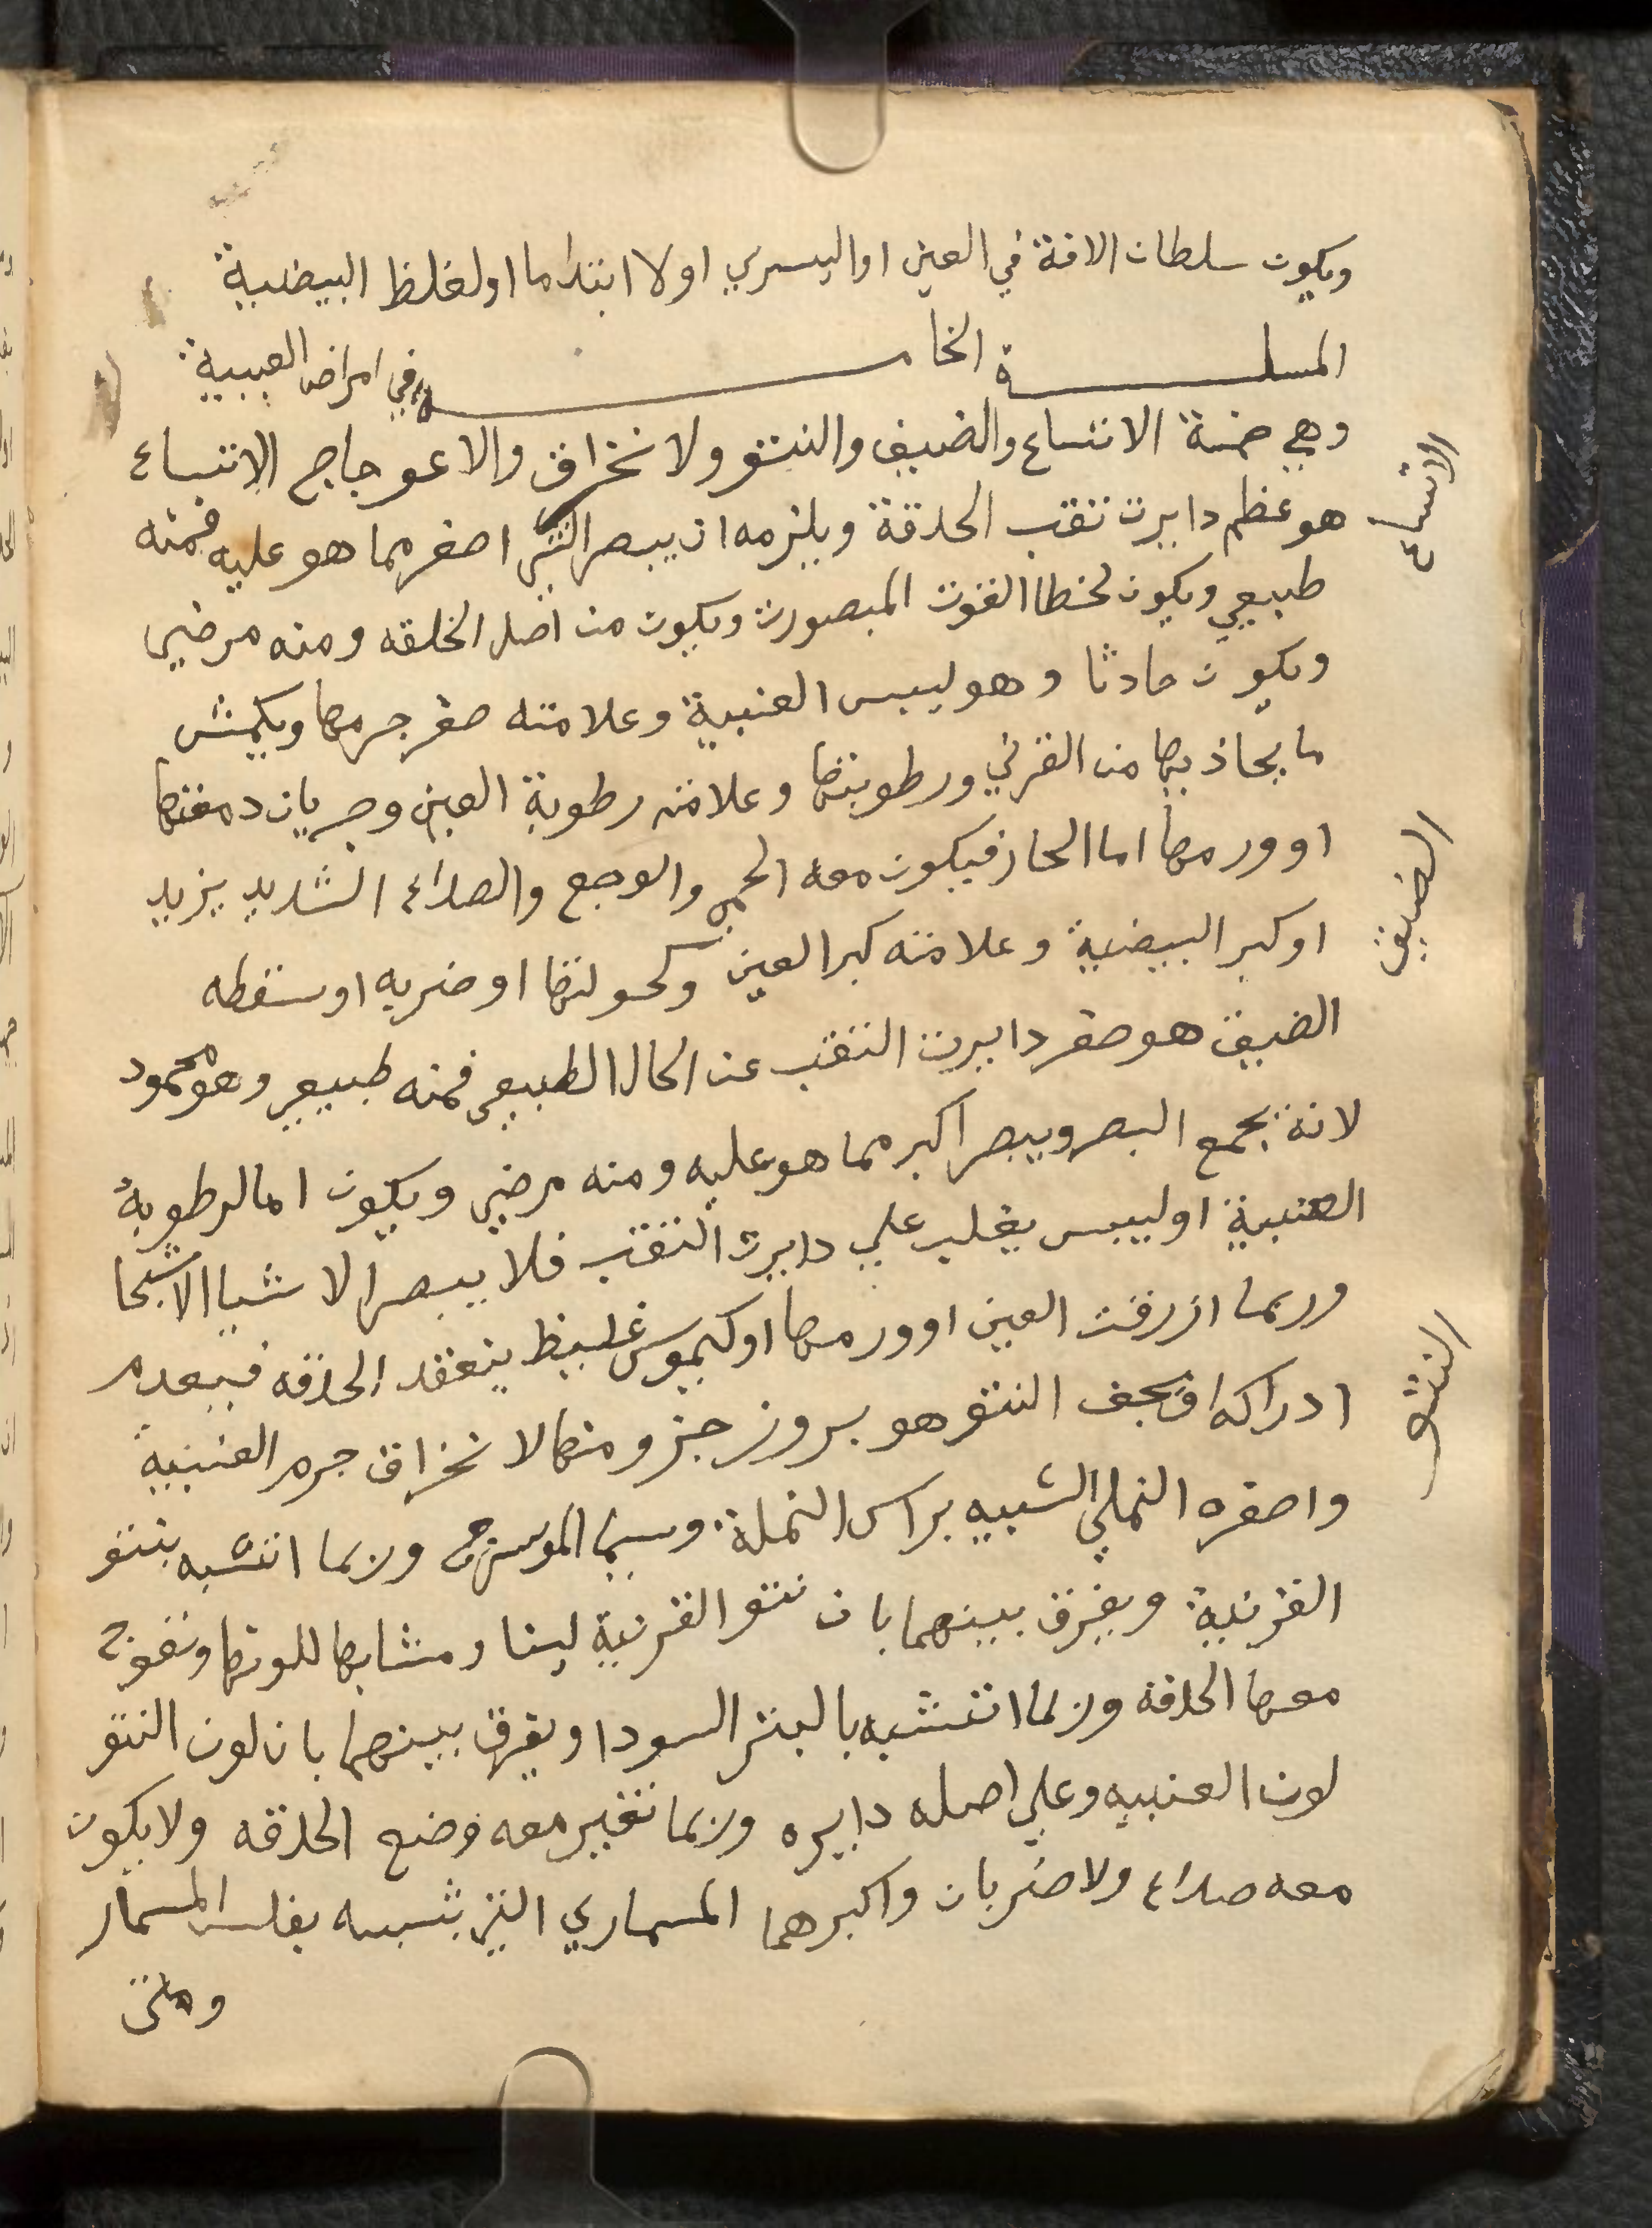 ويكون سلطان الافة في العين او اليسري اولا ابتداما اولغلظ البيضية
المسلة الخامسة في امراض العينية
وهي خمسة الاتساع والضيق والنتو ولانخراق والاعوجاج الاتساع
هو عظم دايرت ثقب الحدقة ويلزمه ان يبصر الشي اصغر مما هو عليه فمنه
طبيعي ويكون لخطا القوت المبصورت ويكون من اصل الخلقه ومنه مرضي
ويكون حادثا وهو ليبس العنبية وعلامته صغر جرمها ويكمش
ما يحاذيها من القرني ورطوبتها وعلامته رطوبة العين وجريان دمعتها
اوورمها اما الحار فيكون معه الحمي والوجع والصداع الشديد يزيد
اوكبر البيضية وعلامته كبر العين وكحولتها اوضربه اوسقطه
الضيق هو صغر دايرت الثقب عن الحال الطبيعي فمنه طبيعي وهو محمود
لانة يجمع البصر ويبصر اكبر مما هو عليه ومنه مرضي ويكون اما لرطوبة
العنبية اوليبس يغلب علي دايرت الثقب فلا يبصر الاشيا الاشبحا
وربما ازرقت العين اوورمها اوكيموس غليظ ينعقد الحدقه فيعدم
ادراكه النتو هو بروز جزو منها لانخراق جرم العنبية
واصغره النملي الشبيه براس النملة وربما اشتبه بنتو
القرنية ويفرق بينهما بان نتو القرنية لينا ومشابها للونها وتعوج
معها الحدقة وربما اشتبه بالبثر السودا ويفرق بينهما بان لون النتو
لون العنبيه وعلي اصله دايره وربما تغير معه وضع الحدقه ولايكون
معه صداع ولاضربان واكبرهما المسماري الذي يشبه بفلس المسمار
ومتي
الاتساع
الضيق
النتو